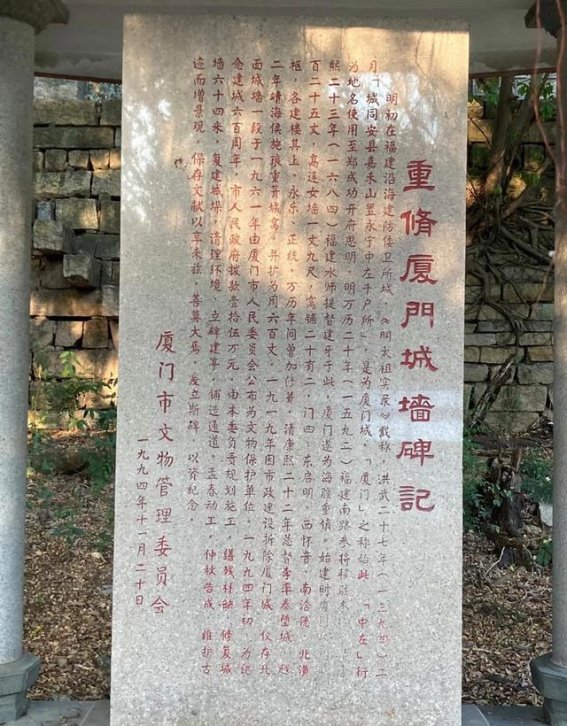 重脩廈門城墻碑記
明初在福建沿海建防倭卫所城，《明太祖实录》载称，洪武二十七年（一三九四）二
月「城同安县嘉禾山置永宁中左千户所」，是为厦门城，「厦门」之称始此，「中左」衍
为地名使用至郑成功开府思明，明万历二十年（一五九二）福建南路参将移驻
熙二十三年（一六八四）福建水师提督建牙于此，厦门遂为海疆重镇。始建时
百二十五丈，高连女墙一丈九尺，窝铺二十有二，门四：东启明，西怀音，南洽德，北潢
枢，各建楼其上，永乐、正统、万历年间曾加修葺，清康熙二十二年总督
二年靖海侯施琅重葺城窝，并扩为周六百丈，一九一九年因市政建设拆除厦门城，仅存北
面城墙一段于一九六一年由厦门市人民委员会公布为文物保护单位，一九九四年初，为纪
念建城六百周年，市人民政府拨款壹拾伍万元，由本委负责规划施工，缮残补缺，修复城
墙六十四米，复建城垛，清理环境，立碑建亭，铺造通道，孟春动工，仲秋告成，维护古
迹而增景观，保存文献以享来兹，善莫大焉，爰立斯碑，以资纪念。
厦门市文物管理委员会
一九九四年十一月二十日